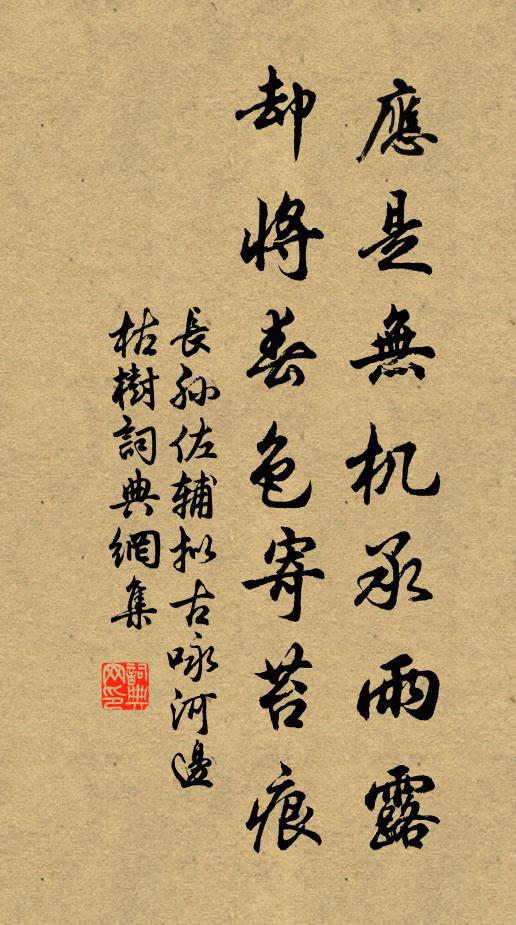 應是無机承雨露
却將春色寄苔痕
長孙佐辅拟古咏河邊
枯樹詞典網集
詞典
网印